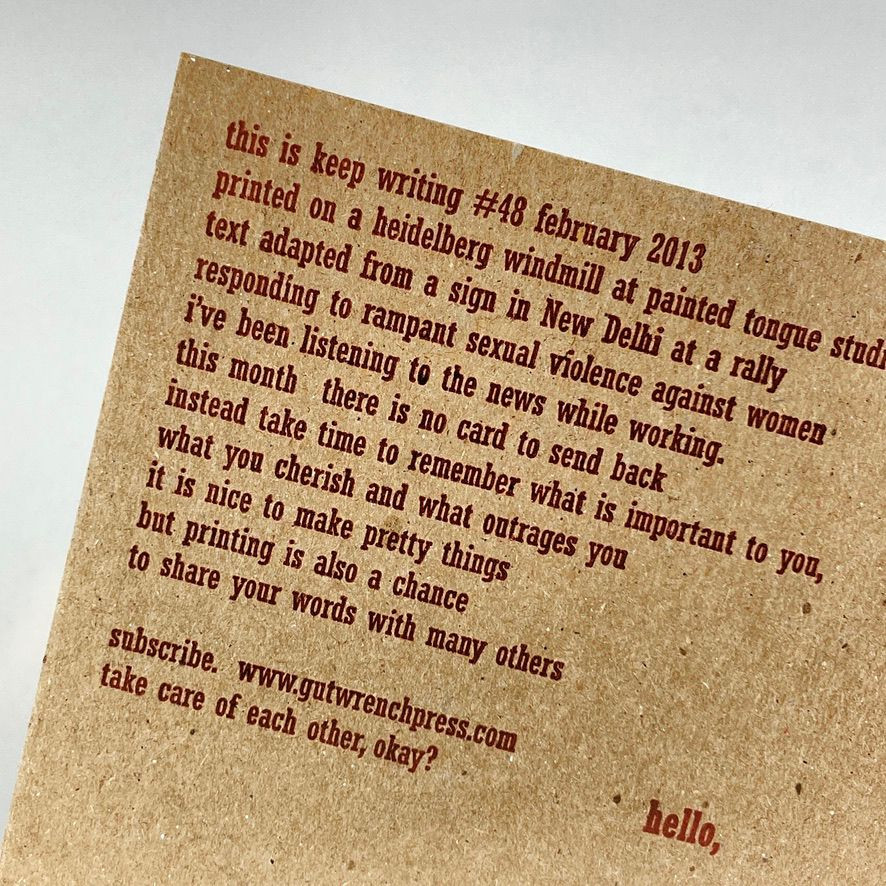 this is keep writing #48 february 2013
printed on a heidelberg windmill at painted tongue studi
text adapted from a sign in New Delhi at a rally
responding to rampant sexual violence against women
i've been listening to the news while working.
this month there is no card to send back
instead take time to remember what is important to you,
what you cherish and what outrages you
it is nice to make pretty things
but printing is also a chance
to share your words with many others
subscribe. www.gutwrenchpress.com
take care of each other, okay?
hello,